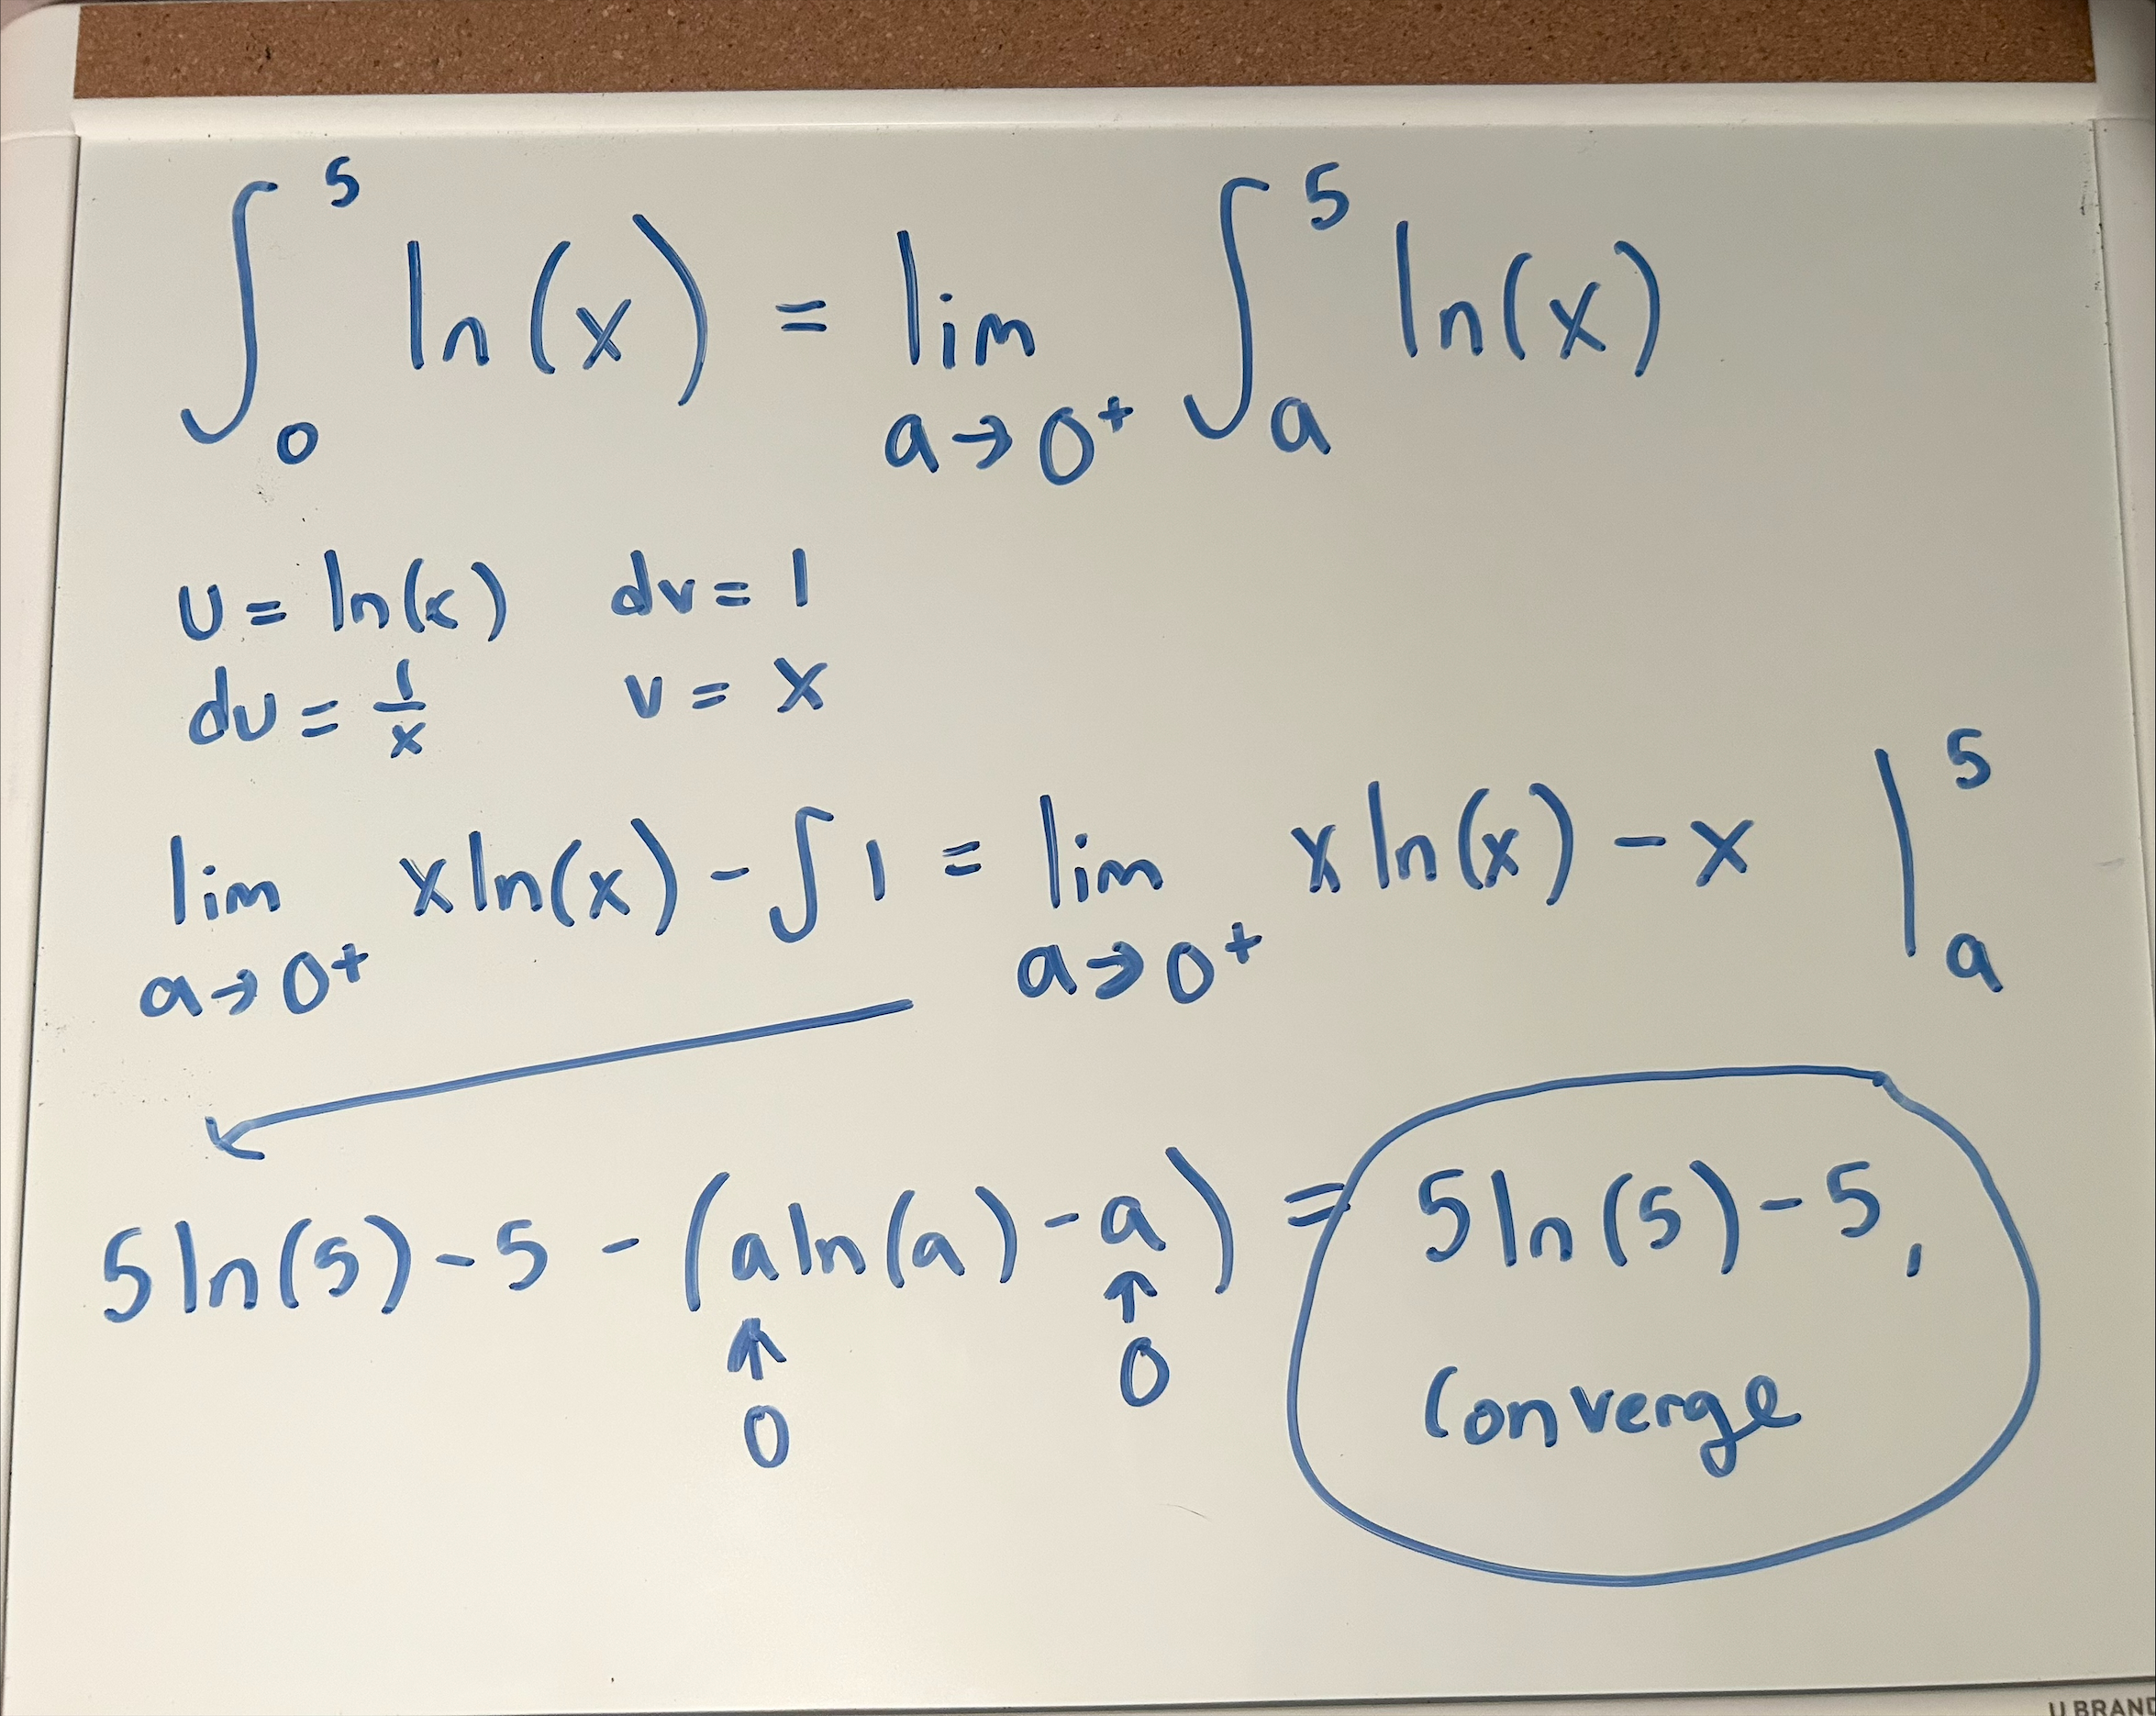 ∫₀⁵ ln(x) = lim a→0⁺ ∫ₐ⁵ ln(x)
u = ln(x) dv = 1
du = 1/x v = x
lim a→0⁺ xln(x) - ∫1 = lim a→0⁺ xln(x) - x |ₐ⁵
5ln(5) - 5 - (aln(a) - a) = 5ln(5) - 5,
↑ ↑
0 0
Converge
U BRAND